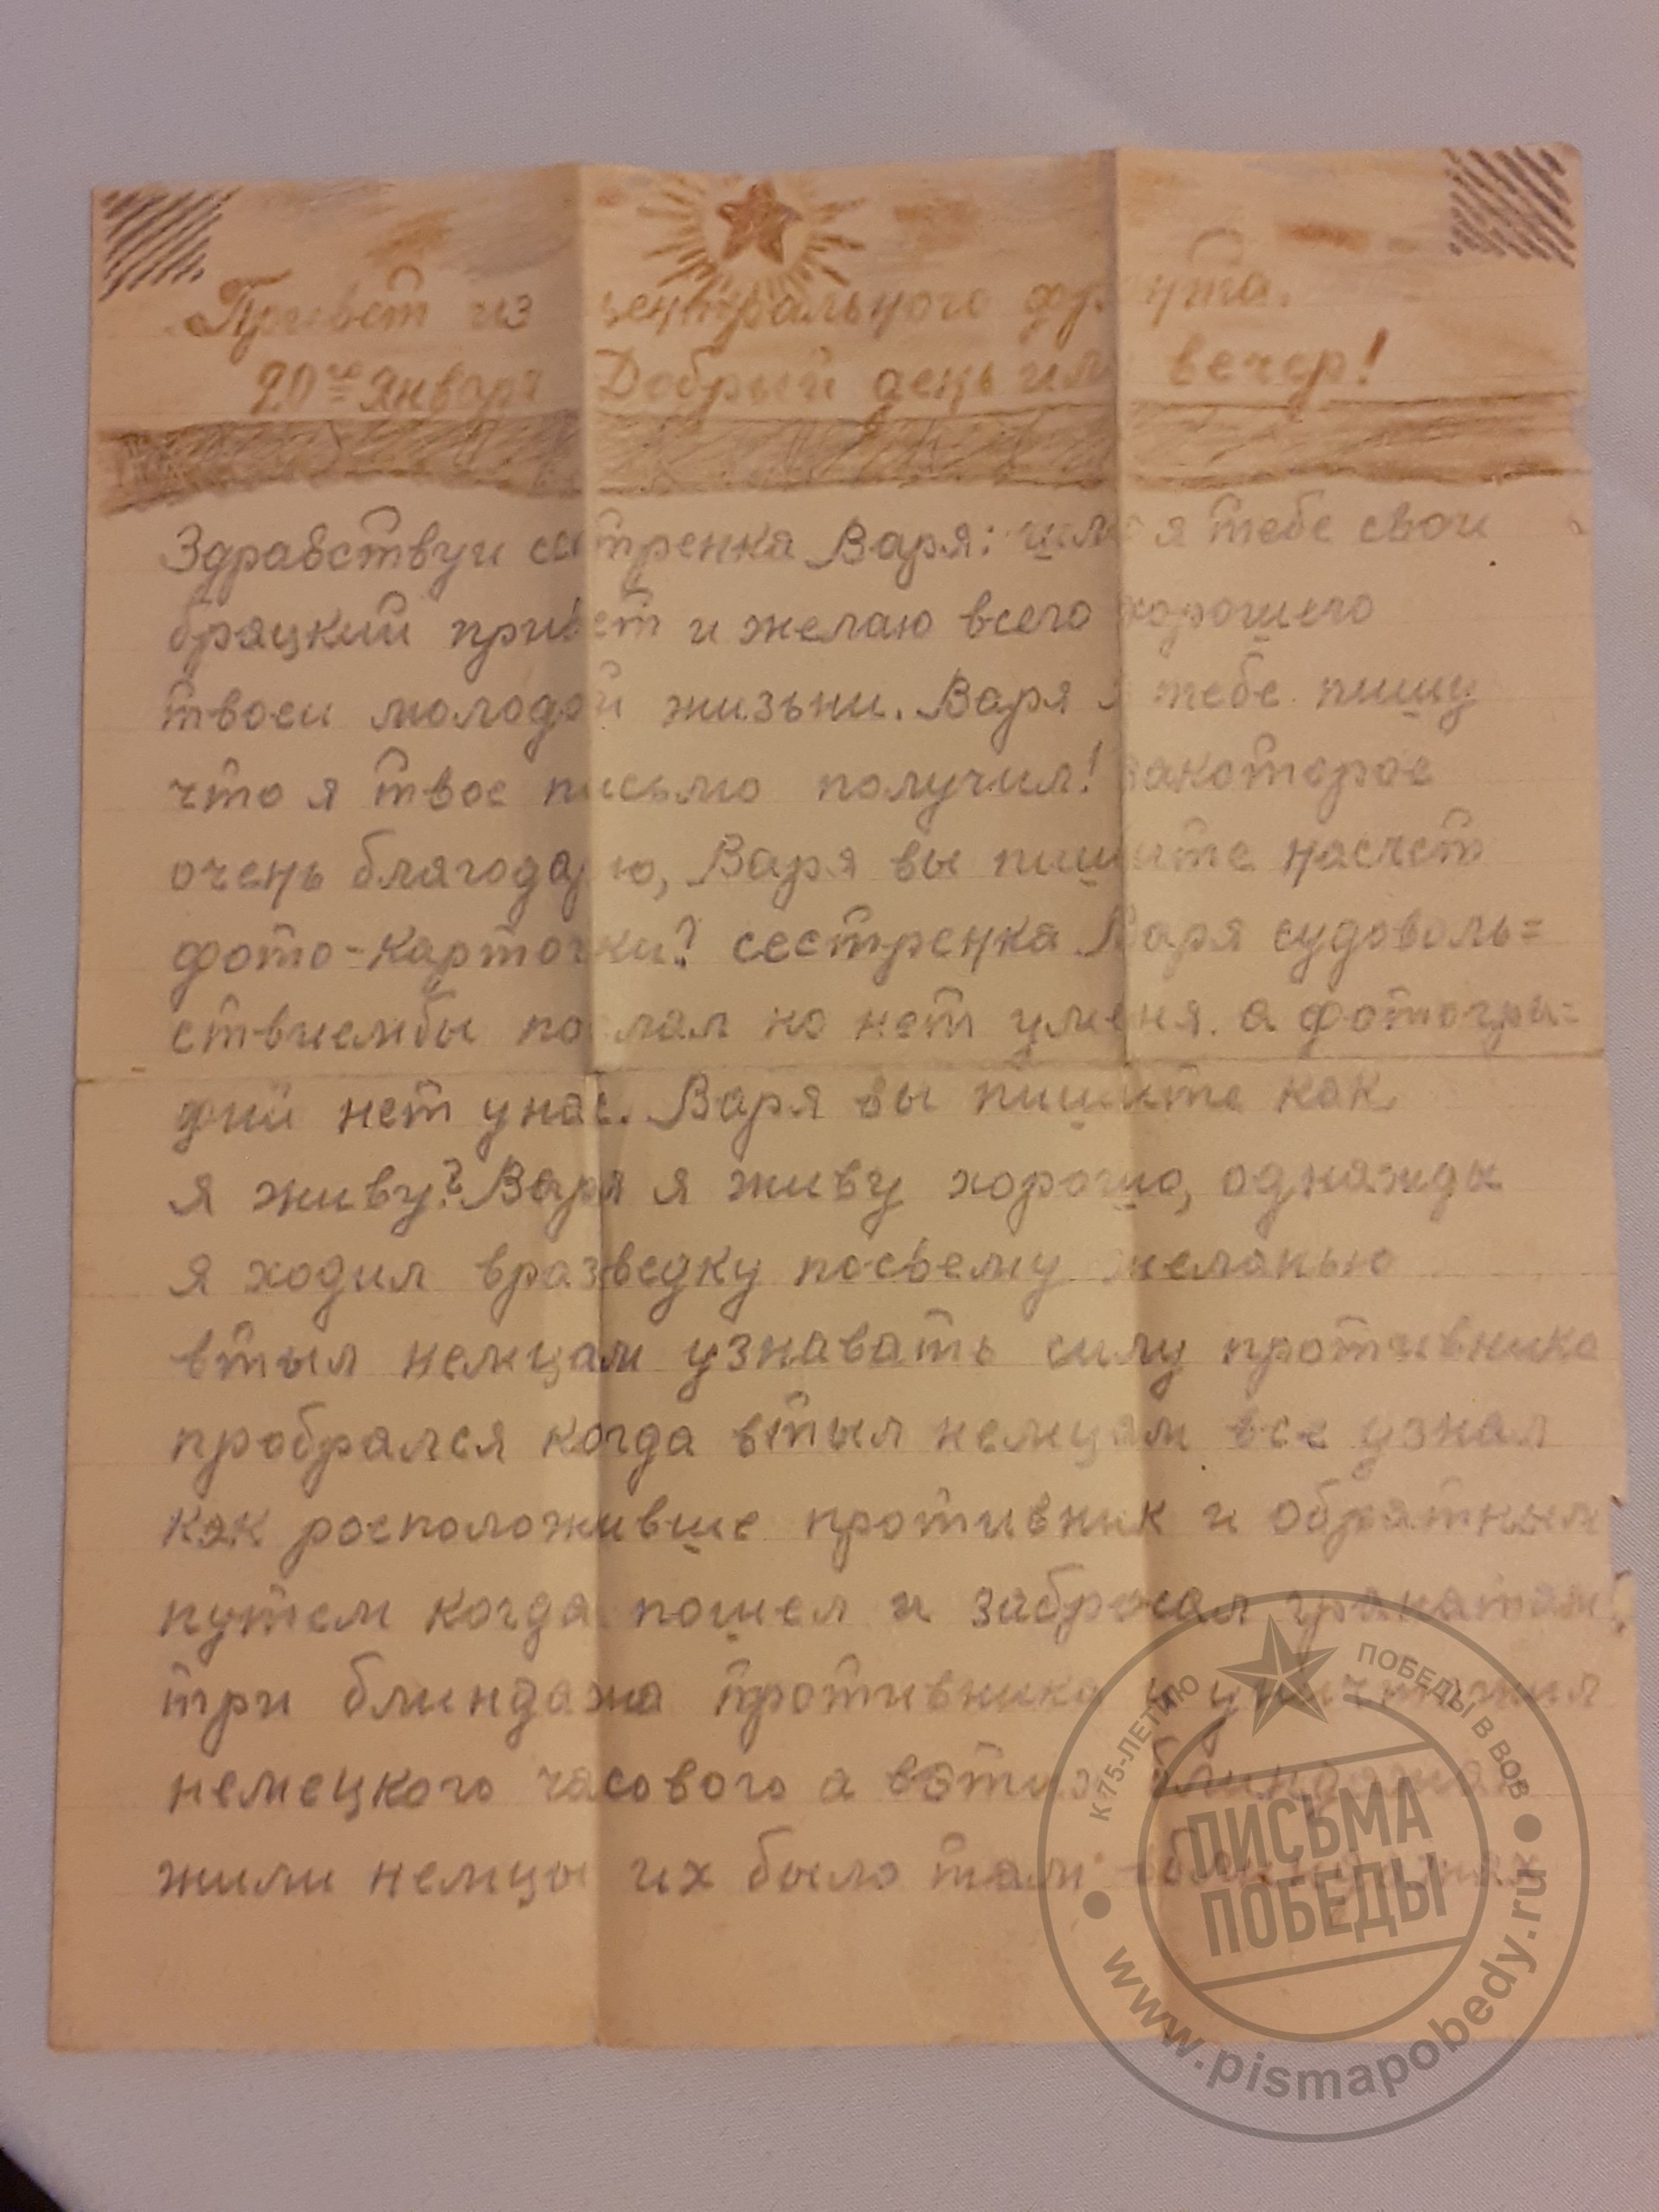 Привет из центрального фронта.
20го Января Добрый день или вечер!
Здравствуи сестренка Варя: шлю я тебе свои
бряцкий привет и желаю всего хорошего
твоеи молодой жизьни. Варя я тебе пишу
что я твое письмо получил! закоторое
очень благодарю, Варя вы пишите насчет
фото-карточки? сестренка Варя судоволь=
ствиембы послал но нет уменя. а фотогра=
фий нет унас. Варя вы пишите как
я живу? Варя я живу хорошо, однажды
я ходил вразведку посвему желанью
втыл немцам узнавать силу противника
пробрался когда втыл немцам все узнал
как росположивше противник и обратным
путем когда пошел и забросал гранатами
три блиндажа противника и уничтожил
немецкого часового а вэтих блиндажах
жили немцы их было там вблиндажах
К 75-ЛЕТИЮ ПОБЕДЫ В ВОВ
ПИСЬМА
ПОБЕДЫ
www.pismapobedy.ru